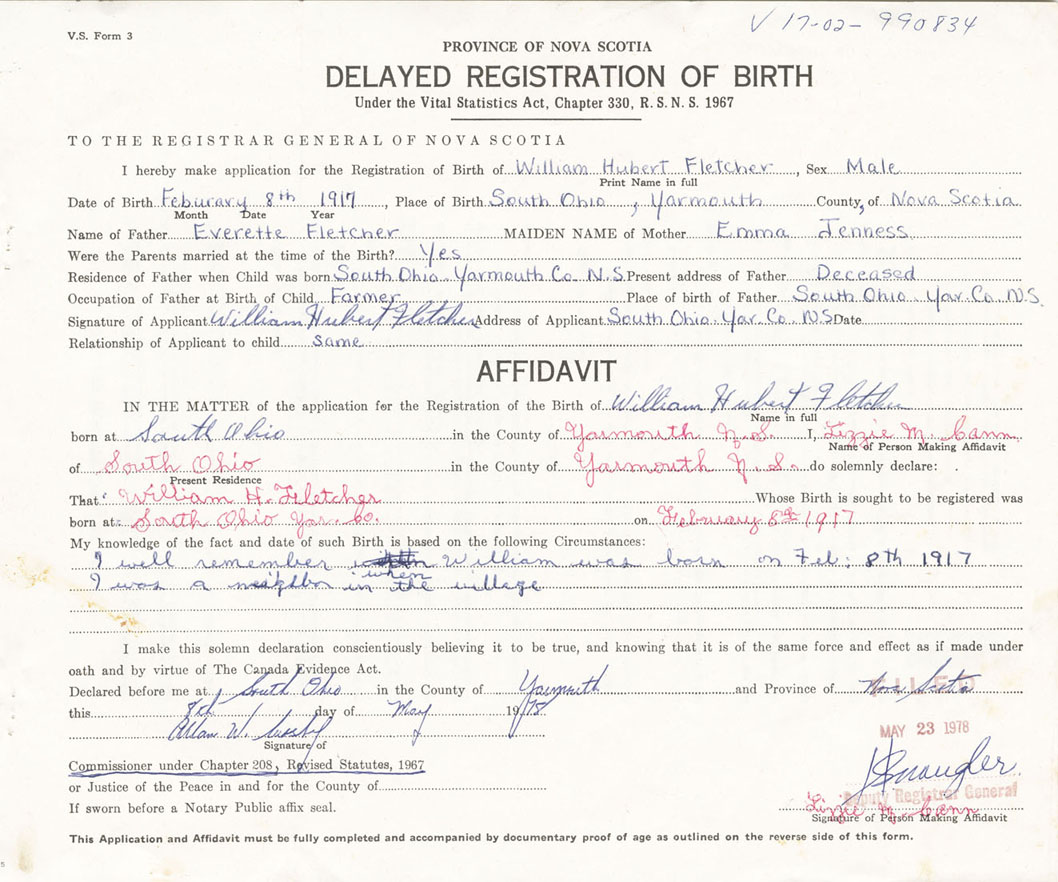 V 17-02-990834
V.S. Form 3
PROVINCE OF NOVA SCOTIA
DELAYED REGISTRATION OF BIRTH
Under the Vital Statistics Act, Chapter 330, R.S.N.S. 1967
TO THE REGISTRAR GENERAL OF NOVA SCOTIA
I hereby make application for the Registration of Birth of William Hubert Fletcher, Sex Male
Print Name in full
Date of Birth Feburary 8th 1917, Place of Birth South Ohio, Yarmouth County, of Nova Scotia
Month Date Year
Name of Father Everette Fletcher MAIDEN NAME of Mother Emma Jenness
Were the Parents married at the time of the Birth? Yes
Residence of Father when Child was born South Ohio Yarmouth Co. N.S. Present address of Father Deceased
Occupation of Father at Birth of Child Farmer Place of birth of Father South Ohio Yar. Co. N.S.
Signature of Applicant William Hubert Fletcher Address of Applicant South Ohio Yar. Co. N.S Date
Relationship of Applicant to child same
AFFIDAVIT
IN THE MATTER of the application for the Registration of the Birth of William Hubert Fletcher
Name in full
born at South Ohio in the County of Yarmouth N.S. I, Lizzie M. Cann
Name of Person Making Affidavit
of South Ohio in the County of Yarmouth N.S. do solemnly declare:
Present Residence
That William H. Fletcher Whose Birth is sought to be registered was
born at: South Ohio Yar. Co. on February 8th 1917
My knowledge of the fact and date of such Birth is based on the following Circumstances:
I well remember William was born on Feb; 8th 1917
when
I was a neighbor in the village
I make this solemn declaration conscientiously believing it to be true, and knowing that it is of the same force and effect as if made under
oath and by virtue of The Canada Evidence Act.
Declared before me at South Ohio in the County of Yarmouth and Province of Nova Scotia
FILED
this 8th day of May 1978
MAY 23 1978
Allan W. Crosby
Signature of
Commissioner under Chapter 208, Revised Statutes, 1967
or Justice of the Peace in and for the County of
Deputy Registrar General
If sworn before a Notary Public affix seal.
Lizzie M Cann
Signature of Person Making Affidavit
This Application and Affidavit must be fully completed and accompanied by documentary proof of age as outlined on the reverse side of this form.